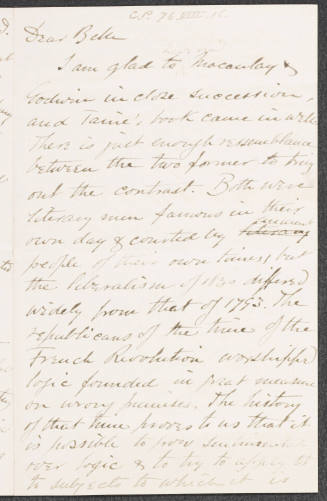 C.P. 76. VIII. 15.
Dear Belle
I am glad to Macaulay &
Godwin in close succession,
and Taine's book came in well.
There is just enough ressemblance
between the two former to bring
out the contrast. Both were
literary men famous in their
own day & courted by eminent
people of their own times; but
the liberalism of 1830 differed
widely from that of 1793. The
republicans of the time of the
French Revolution worshipped
logic founded in great measure
on wrong premises. The history
of that time proves to us that it
is possible to
over logic & to try to apply it
to subjects to which it is